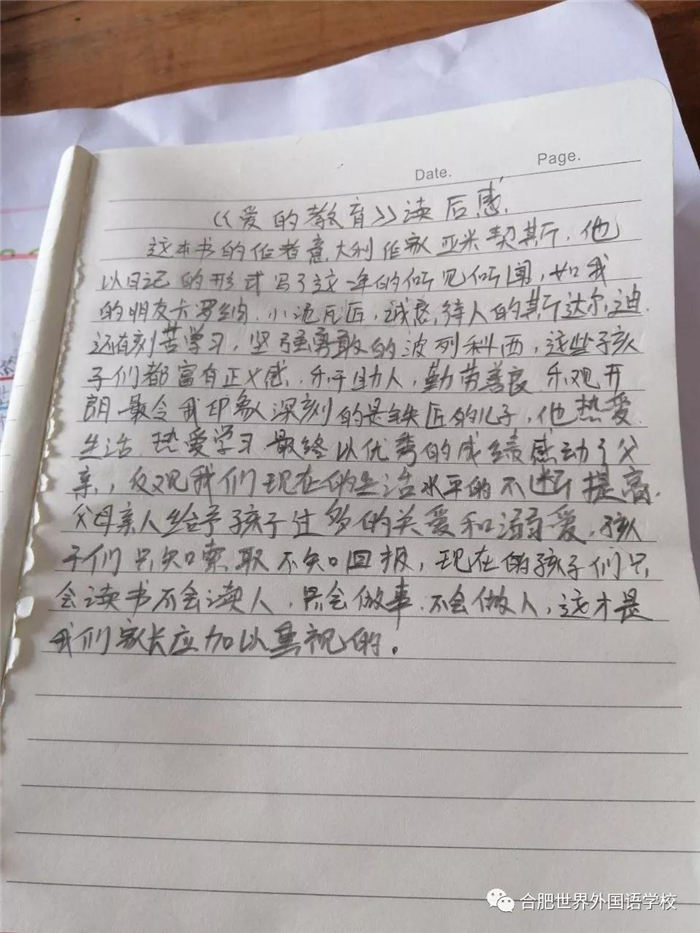 Date. Page.
《爱的教育》读后感
这本书的作者意大利作家亚米契斯.他
以日记的形式写了这一年的所见所闻,如我
的明友卡罗纳.小泥瓦匠,诚恳待人的斯达尔迪.
还有刻苦学习,坚强勇敢的波列科西,这些孩
子们都富有正义感,乐于助人,勤劳善良乐观开
朗.最令我印象深刻的是铁匠的儿子,他热爱
生活.热爱学习最终以优秀的成绩感动了父
亲,反观我们现在的生活水平的不断提高.
父母亲人给予孩子过多的关爱和溺爱,孩
子们只知索取不知回报,现在的孩子们只
会读书不会读人.只会做事.不会做人,这才是
我们家长应加以重视的。
合肥世界外国语学校